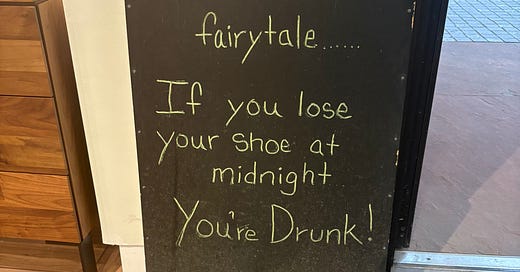 fairytale......
If you lose
your shoe at
midnight
You're Drunk!